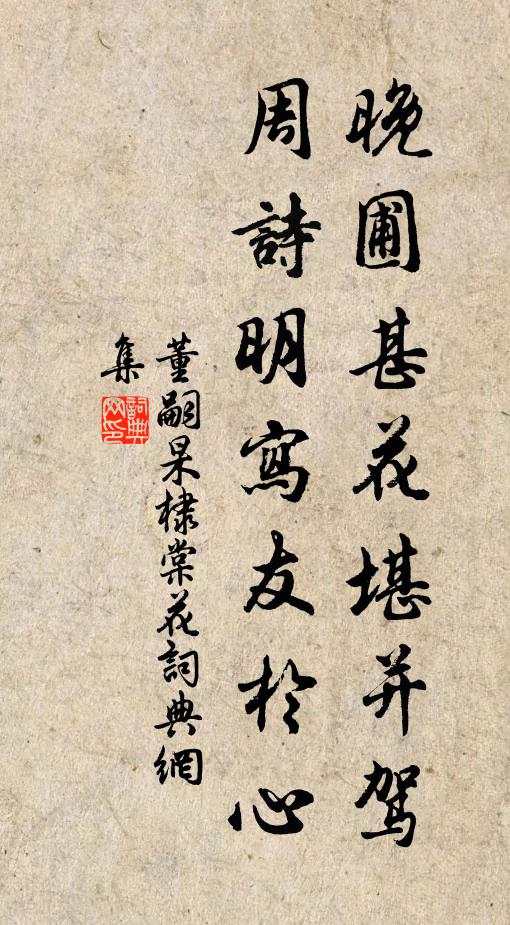 晚圃甚花堪并駕
周詩明寫友於心
董嗣杲棣棠花詞典網
集
詞典網印